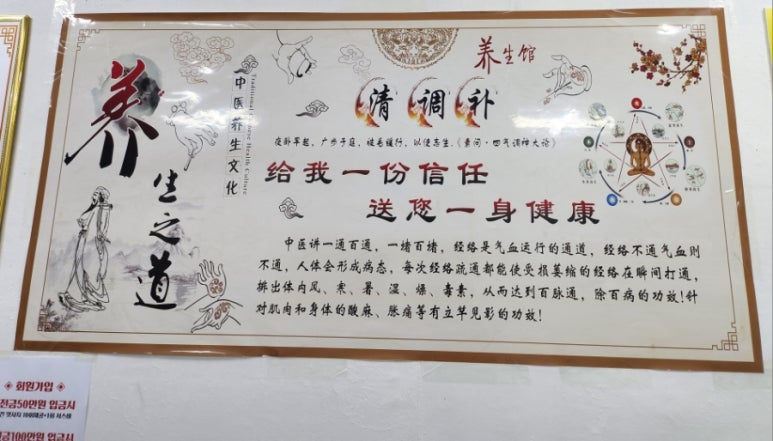 养生之道
中医养生文化
Traditional Chinese Health Culture
养生馆
清调补
夜卧早起，广步于庭，被毛缓行，以便志生.《素问·四气调神大论》
给我一份信任
送您一身健康
中医讲一通百通，一绪百绪，经络是气血运行的通道，经络不通气血则
不通，人体会形成病态，每次经络疏通都能使受损萎缩的经络在瞬间打通，
排出体内风、寒、暑、湿、燥、毒素，从而达到百脉通，除百病的功效!针
对肌肉和身体的酸麻、胀痛等有立竿见影的功效!
회원가입
전금50만원 입금시
금100만원 입금시